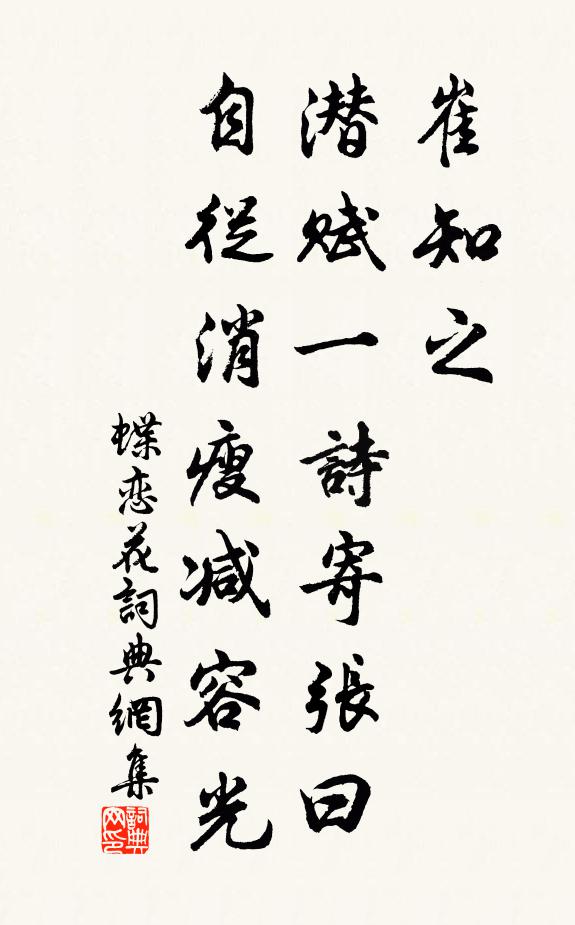 崔知之
潜赋一詩寄張曰
自從消瘦减容光
蝶恋花詞典網集
詞典网印